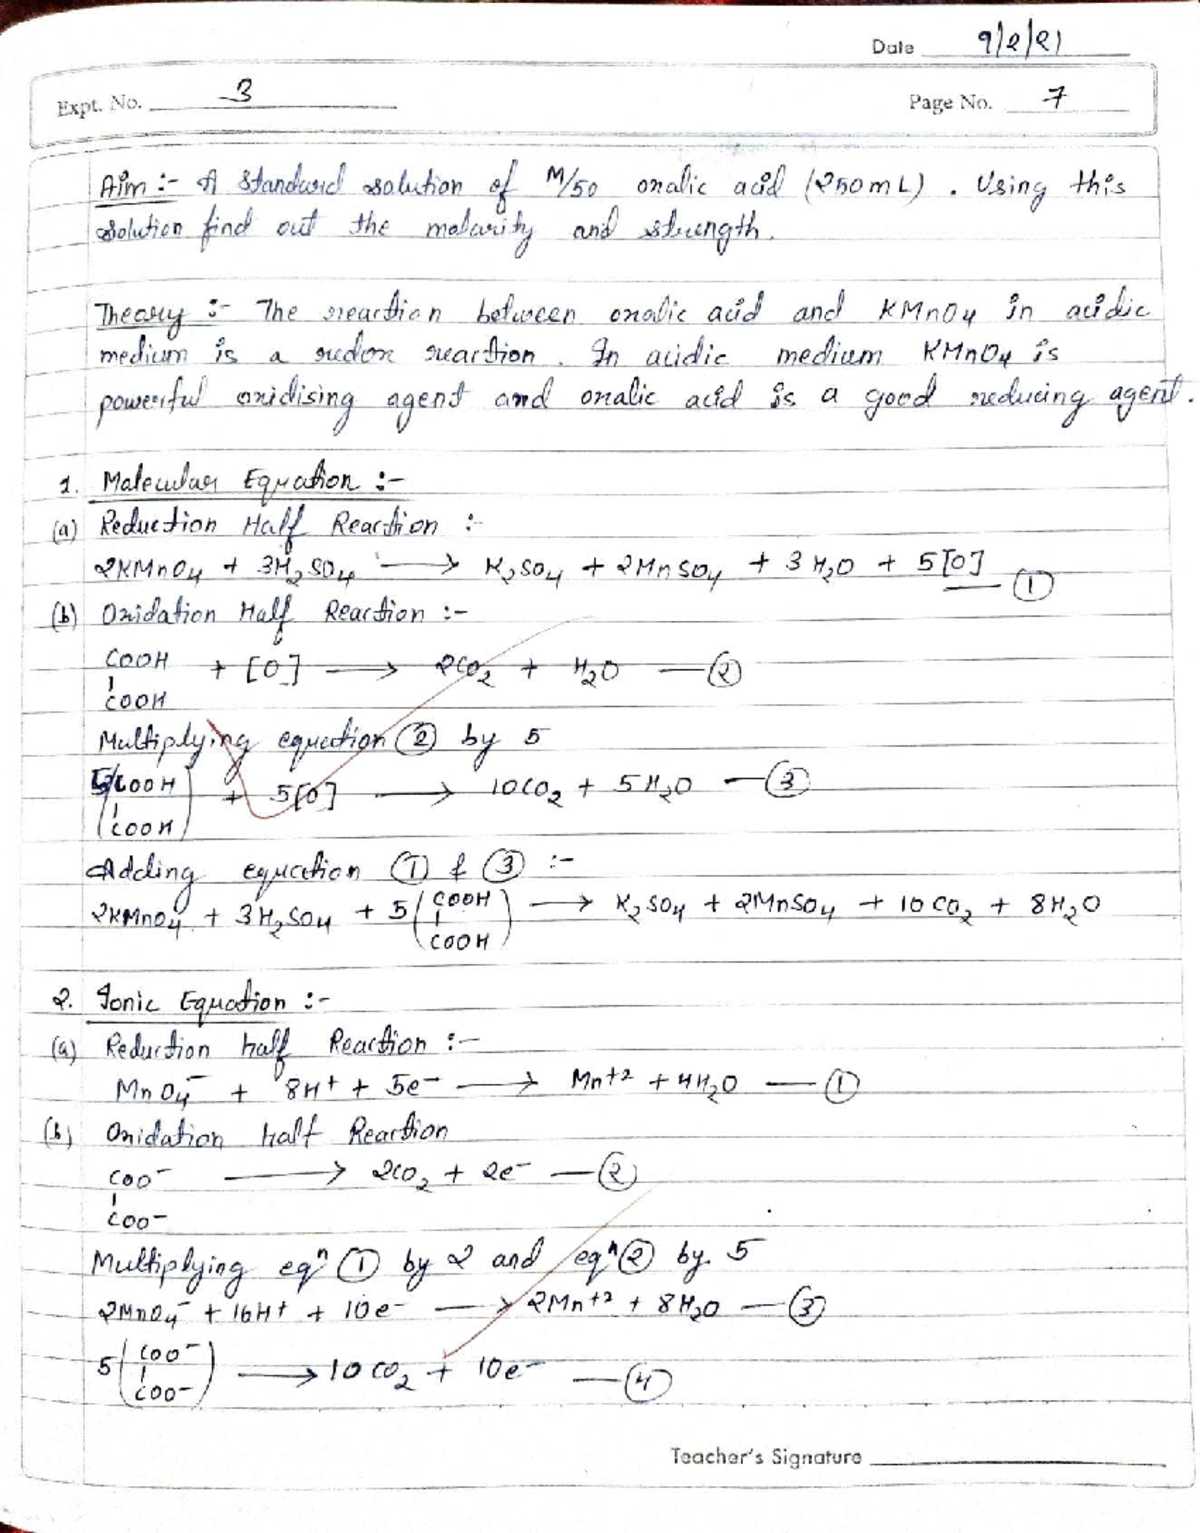 Date 9/2/21
Expt. No. 3
Page No. 7
Aim :- A standard solution of M/50 oxalic acid (250mL). Using this
solution find out the molarity and strength.
Theory :- The reaction between oxalic acid and KMnO4 in acidic
medium is a redox reaction. In acidic medium KMnO4 is
powerful oxidising agent and oxalic acid is a good reducing agent.
1. Molecular Equation :-
(a) Reduction Half Reaction :-
2KMnO4 + 3H2SO4 → K2SO4 + 2MnSO4 + 3H2O + 5[O] — ①
(b) Oxidation Half Reaction :-
COOH
| + [O] → 2CO2 + H2O — ②
COOH
Multiplying equation ② by 5
5(COOH
| ) + 5[O] → 10CO2 + 5H2O — ③
(COOH)
Adding equation ① & ③ :-
2KMnO4 + 3H2SO4 + 5(COOH
| ) → K2SO4 + 2MnSO4 + 10CO2 + 8H2O
(COOH)
2. Ionic Equation :-
(a) Reduction half Reaction :-
MnO4- + 8H+ + 5e- → Mn+2 + 4H2O — ①
(b) Oxidation half Reaction
COO- → 2CO2 + 2e- — ②
|
COO-
Multiplying eqn ① by 2 and eqn ② by 5
2MnO4- + 16H+ + 10e- → 2Mn+2 + 8H2O — ③
5(COO-
| ) → 10CO2 + 10e- — ④
(COO-)
Teacher's Signature